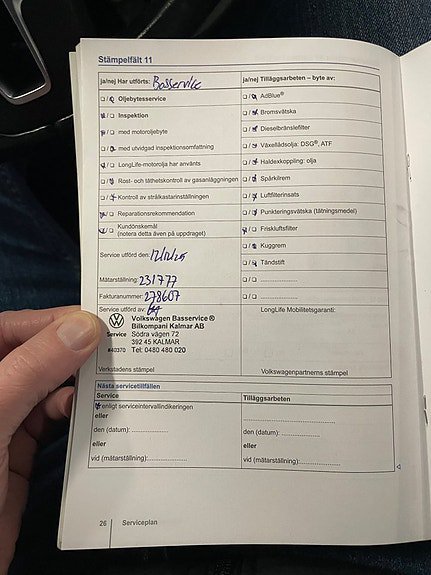 Stämpelfält 11
ja/nej Har utförts: Basservice
ja/nej Tilläggsarbeten – byte av:
□ / □ Oljebytesservice
□ / □ AdBlue®
□ / □ Inspektion
□ / □ Bromsvätska
□ / □ med motoroljebyte
□ / □ Dieselbränslefilter
□ / □ med utvidgad inspektionsomfattning
□ / □ Växellådsolja: DSG®, ATF
□ / □ LongLife-motorolja har använts
□ / □ Haldexkoppling: olja
□ / □ Rost- och täthetskontroll av gasanläggningen
□ / □ Spårkilrem
□ / □ Kontroll av strålkastarinställningen
□ / □ Luftfilterinsats
□ / □ Reparationsrekommendation
□ / □ Punkteringsvätska (tätningsmedel)
□ / □ Kundönskemål
(notera detta även på uppdraget)
□ / □ Friskluftsfilter
□ / □ Kuggrem
Service utförd den: 12/12/25
□ / □ Tändstift
Mätarställning: 231777
□ / □ ....................
Fakturanummer: 278607
□ / □ ....................
Service utförd av:
LongLife Mobilitetsgaranti:
Volkswagen Basservice®
Bilkompani Kalmar AB
Service Södra vägen 72
392 45 KALMAR
#40370 Tel: 0480 480 020
Verkstadens stämpel
Volkswagenpartnerns stämpel
Nästa servicetillfällen
Service
Tilläggsarbeten
□ enligt serviceintervallindikeringen
....................
eller
eller
den (datum): ....................
den (datum): ....................
eller
eller
vid (mätarställning):....................
vid (mätarställning):....................
26 Serviceplan